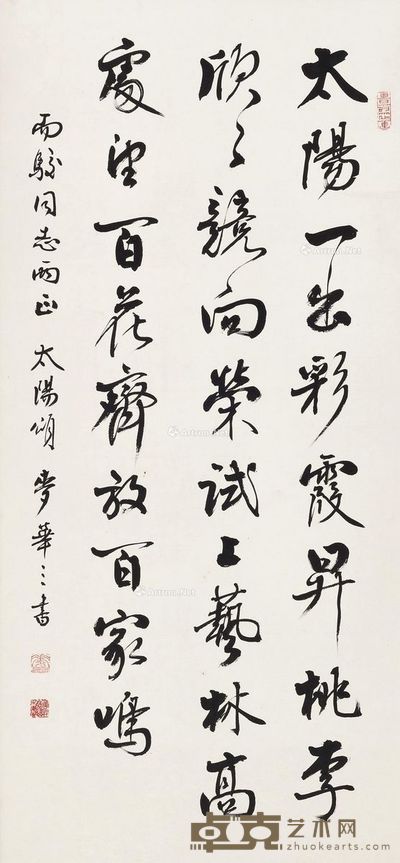 太陽一出彩霞昇桃李
欣々競向榮試上藝林高
處望百花齊放百家鳴
雨駿同志兩正 太陽頌 麥華三書
卓克艺术网
zhuokearts.com